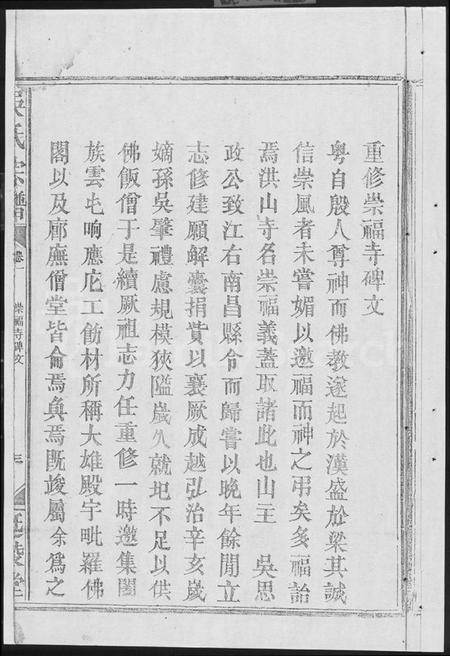 重修崇福寺碑文
粵自殷人尊神而佛教遂起於漢盛於梁其誠
信崇風者未嘗媚以邀福而神之弔矣多福詒
焉洪山寺名崇福義蓋取諸此也山主 吳思
政公致江右南昌縣令而歸嘗以晚年餘閒立
志修建願解囊捐貲以襄厥成越弘治辛亥歲
嫡孫吳肇禮慮規模狹隘歲久就圯不足以供
佛飯僧于是續厥祖志力任重修一時邀集闔
族雲屯响應庀工飭材所稱大雄殿宇毗羅佛
閣以及廊廡僧堂皆侖焉奐焉既竣屬余爲之
吳氏宗譜
卷一
崇福寺碑文
三
延陵堂